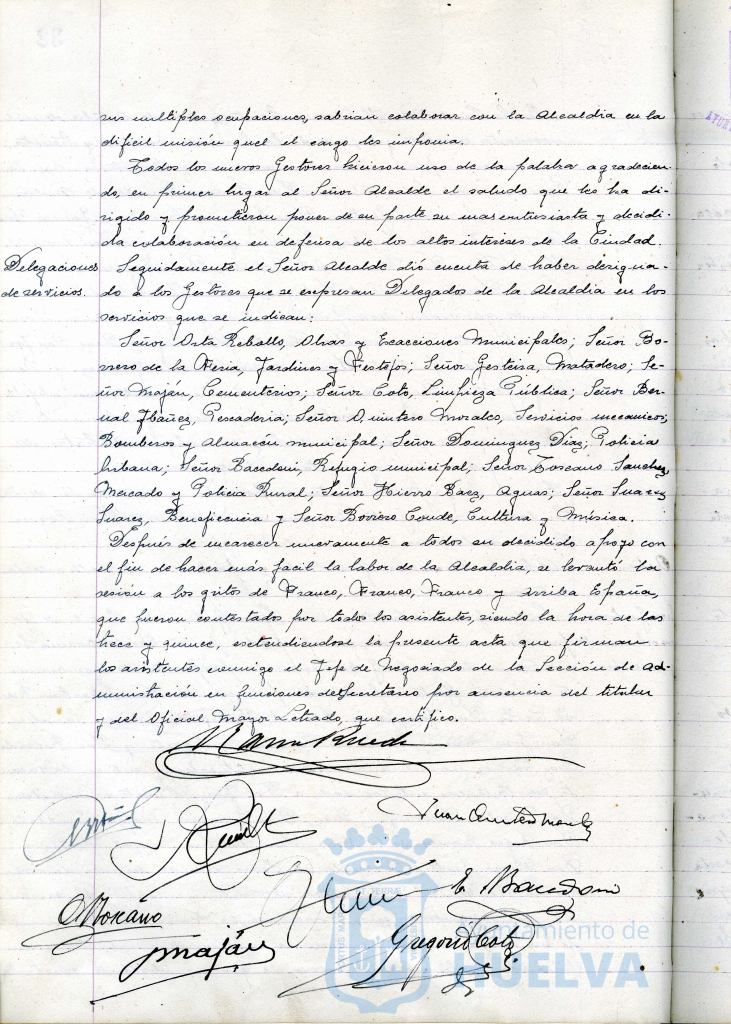 sus multiples ocupaciones, sabrian colaborar con la Alcaldia en la
dificil misión quel el cargo les imponia.
Todos los nuevos Gestores hicieron uso de la palabra agradecien-
do, en primer lugar al Señor Alcalde el saludo que les ha di-
rigido y prometieron poner de su parte su mas entusiasta y decidi-
da colaboración en defensa de los altos intereses de la Ciudad.
Delegaciones
de servicios.
Seguidamente el Señor Alcalde dió cuenta de haber designa-
do a los Gestores que se expresan Delegados de la Alcaldia en los
servicios que se indican:
Señor Orta Rebollo, Obras y Exacciones Municipales; Señor Bo-
rrero de la Feria, Jardines y Festejos; Señor Gesteira, Matadero; Se-
ñor Maján, Cementerios; Señor Coto, Limpieza Pública; Señor Ber-
nal Ibáñez, Pescaderia; Señor Quintero Morales, Servicios mecanicos;
Bomberos y Almacén municipal; Señor Dominguez Diaz, Policia
Urbana; Señor Bacedoni, Refugio municipal; Señor Toscano Sanchez,
Mercado y Policia Rural; Señor Hierro Baez, Aguas; Señor Suarez
Suarez, Beneficencia y Señor Borrero Conde, Cultura y Música.
Después de encarecer nuevamente a todos su decidido apoyo con
el fin de hacer más facil la labor de la Alcaldia, se levantó la
sesión a los gritos de Franco, Franco, Franco y Arriba España,
que fueron contestados por todos los asistentes, siendo la hora de las
trece y quince, extendiendose la presente acta que firman
los asistentes conmigo el Jefe de Negociado de la Sección de Ad-
ministracion en funciones de Secretario por ausencia del titular
y del Oficial Mayor Letrado, que certifico.
Juan Quintero Morales
E. Bacedoni
Maján
Gregorio Coto
Ayuntamiento de
HUELVA